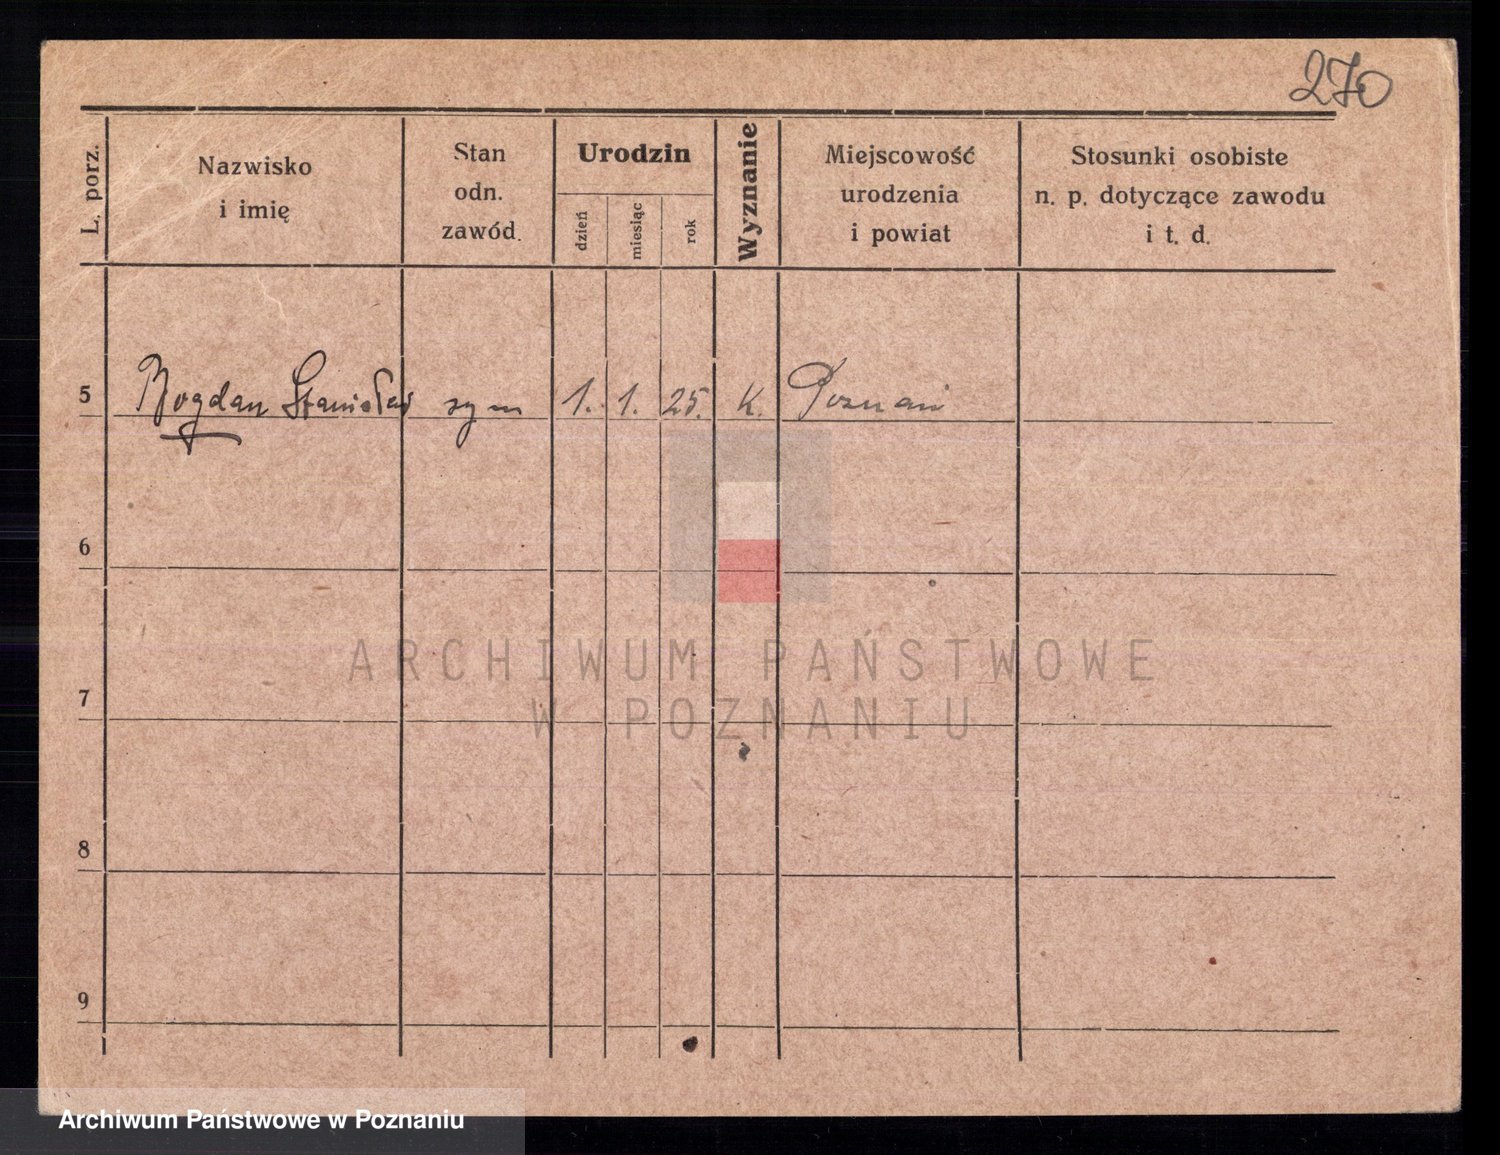 270
L. porz.
Nazwisko
i imię
Stan
odn.
zawód.
Urodzin
dzień
miesiąc
rok
Wyznanie
Miejscowość
urodzenia
i powiat
Stosunki osobiste
n. p. dotyczące zawodu
i t. d.
5 Bogdan Stanisław syn 1. 1. 25. K. Poznań
6
7
8
9
ARCHIWUM PAŃSTWOWE
W POZNANIU
Archiwum Państwowe w Poznaniu